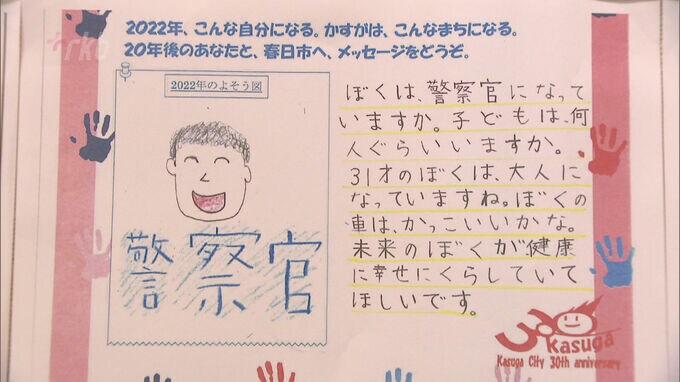 rkb
2022年、こんな自分になる。かすがは、こんなまちになる。
20年後のあなたと、春日市へ、メッセージをどうぞ。
2022年のよそう図
警察官
ぼくは、警察官になって
いますか。子どもは、何
人ぐらいいますか。
31才のぼくは、大人に
なっていますね。ぼくの
車は、かっこいいかな。
未来のぼくが健康
に幸せにくらしていて
ほしいです。
30
Kasuga
Kasuga City 30th anniversary